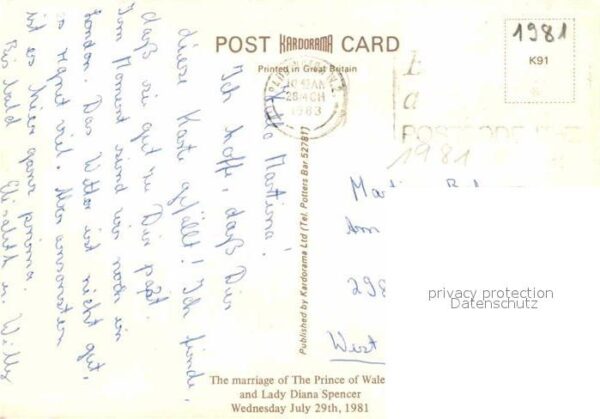 POST KARDORAMA CARD
Printed in Great Britain
1981
K91
10 45AM
28 MCH
1983
POSTCODE
1981
Hallo Martina!
Ich hoffe, daß Dir
diese Karte gefällt! Ich finde,
daß sie gut zu Dir paßt.
Im Moment sind wir noch in
London. Das Wetter ist nicht gut,
es regnet viel. Aber ansonsten
ist es hier ganz prima.
Bis bald
Elisabeth u. Willy
Published by Kardorama Ltd (Tel. Potters Bar 52781)
Am
298
West
privacy protection
Datenschutz
The marriage of The Prince of Wale
and Lady Diana Spencer
Wednesday July 29th, 1981